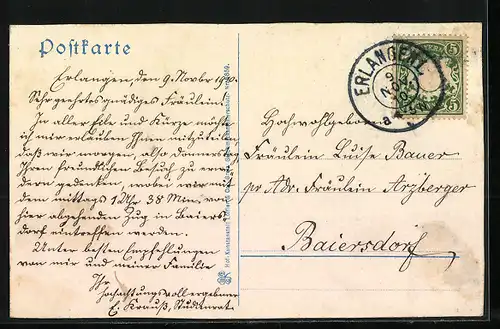 Postkarte
Erlangen, den 9. Novbr 1910.
Sehr geehrtes gnädiges Fräulein!
In aller Eile und Kürze möchte
ich mir erlauben Ihnen mitzuteilen
daß wir morgen, also Donnerstag
Ihren freundlichen Besuch zu erwi-
dern gedenken, wobei wir mit
dem mittags 1 Uhr 38 Min. von
hier abgehenden Zug in Baiers
dorf eintreffen werden.
Unter besten Empfehlungen
von mir und meiner Familie
Ihr
hochachtungsvoll ergebener
E. Krauß, Studienrat.
ERLANGEN
9
NOV
5
5
Hochwohlgeboren
Fräulein Luise Bauer
pr. Adr. Fräulein Arzberger
Baiersdorf